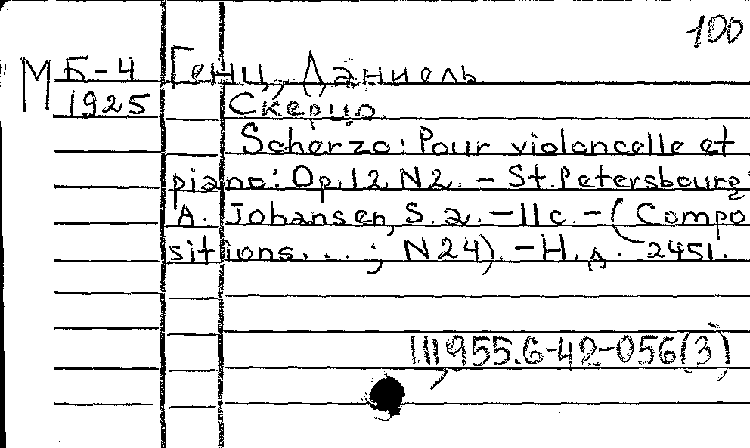 100
М Б-4 Генц, Даниель
1925 Скерцо
Scherzo: Pour violoncelle et
piano: Op.12 N2. - St.Petersbourg:
A. Johansen, S.a. - 11c. - (Compo
sitions. . . ; N24). - Н.д. 2451.
955.6-42-056(3)